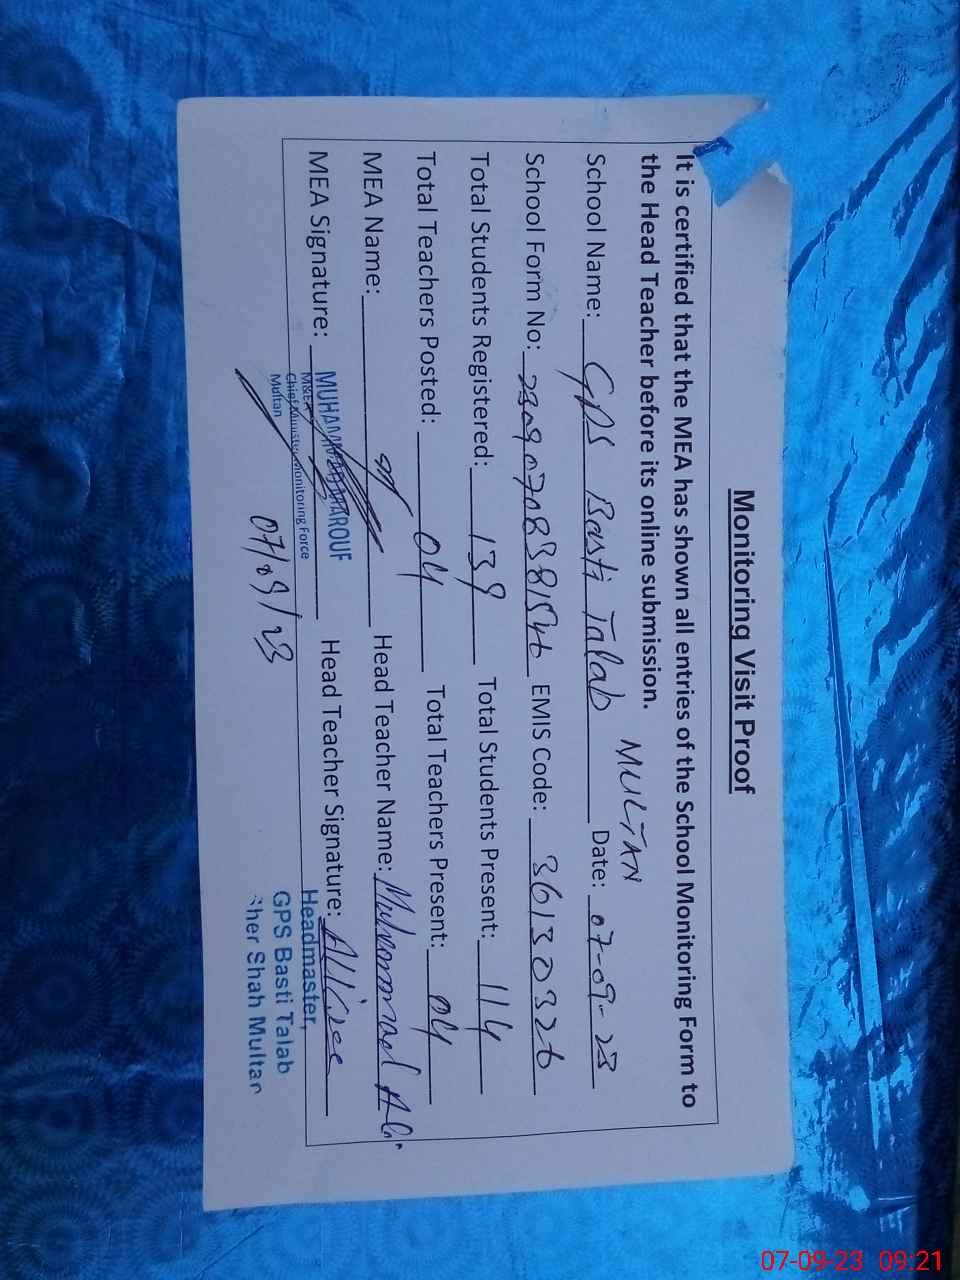 Monitoring Visit Proof
It is certified that the MEA has shown all entries of the School Monitoring Form to
the Head Teacher before its online submission.
MULTAN
School Name: GPS Basti Talab Date: 07-09-23
School Form No: EMIS Code: 36130326
Total Students Registered: 139 Total Students Present: 114
Total Teachers Posted: 04 Total Teachers Present: 04
MEA Name: Head Teacher Name: Muhammad Ali
MEA Signature: Head Teacher Signature:
MUHAMMAD MAROUF
M&EA
Chief Minister Monitoring Force
Multan
07/09/23
Headmaster,
GPS Basti Talab
Sher Shah Multan
07-09-23 09:21